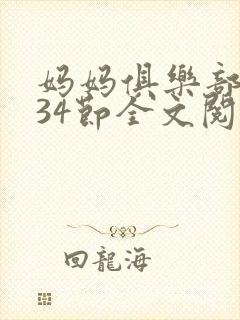 妈妈俱樂部
34節全文閱
回龍海